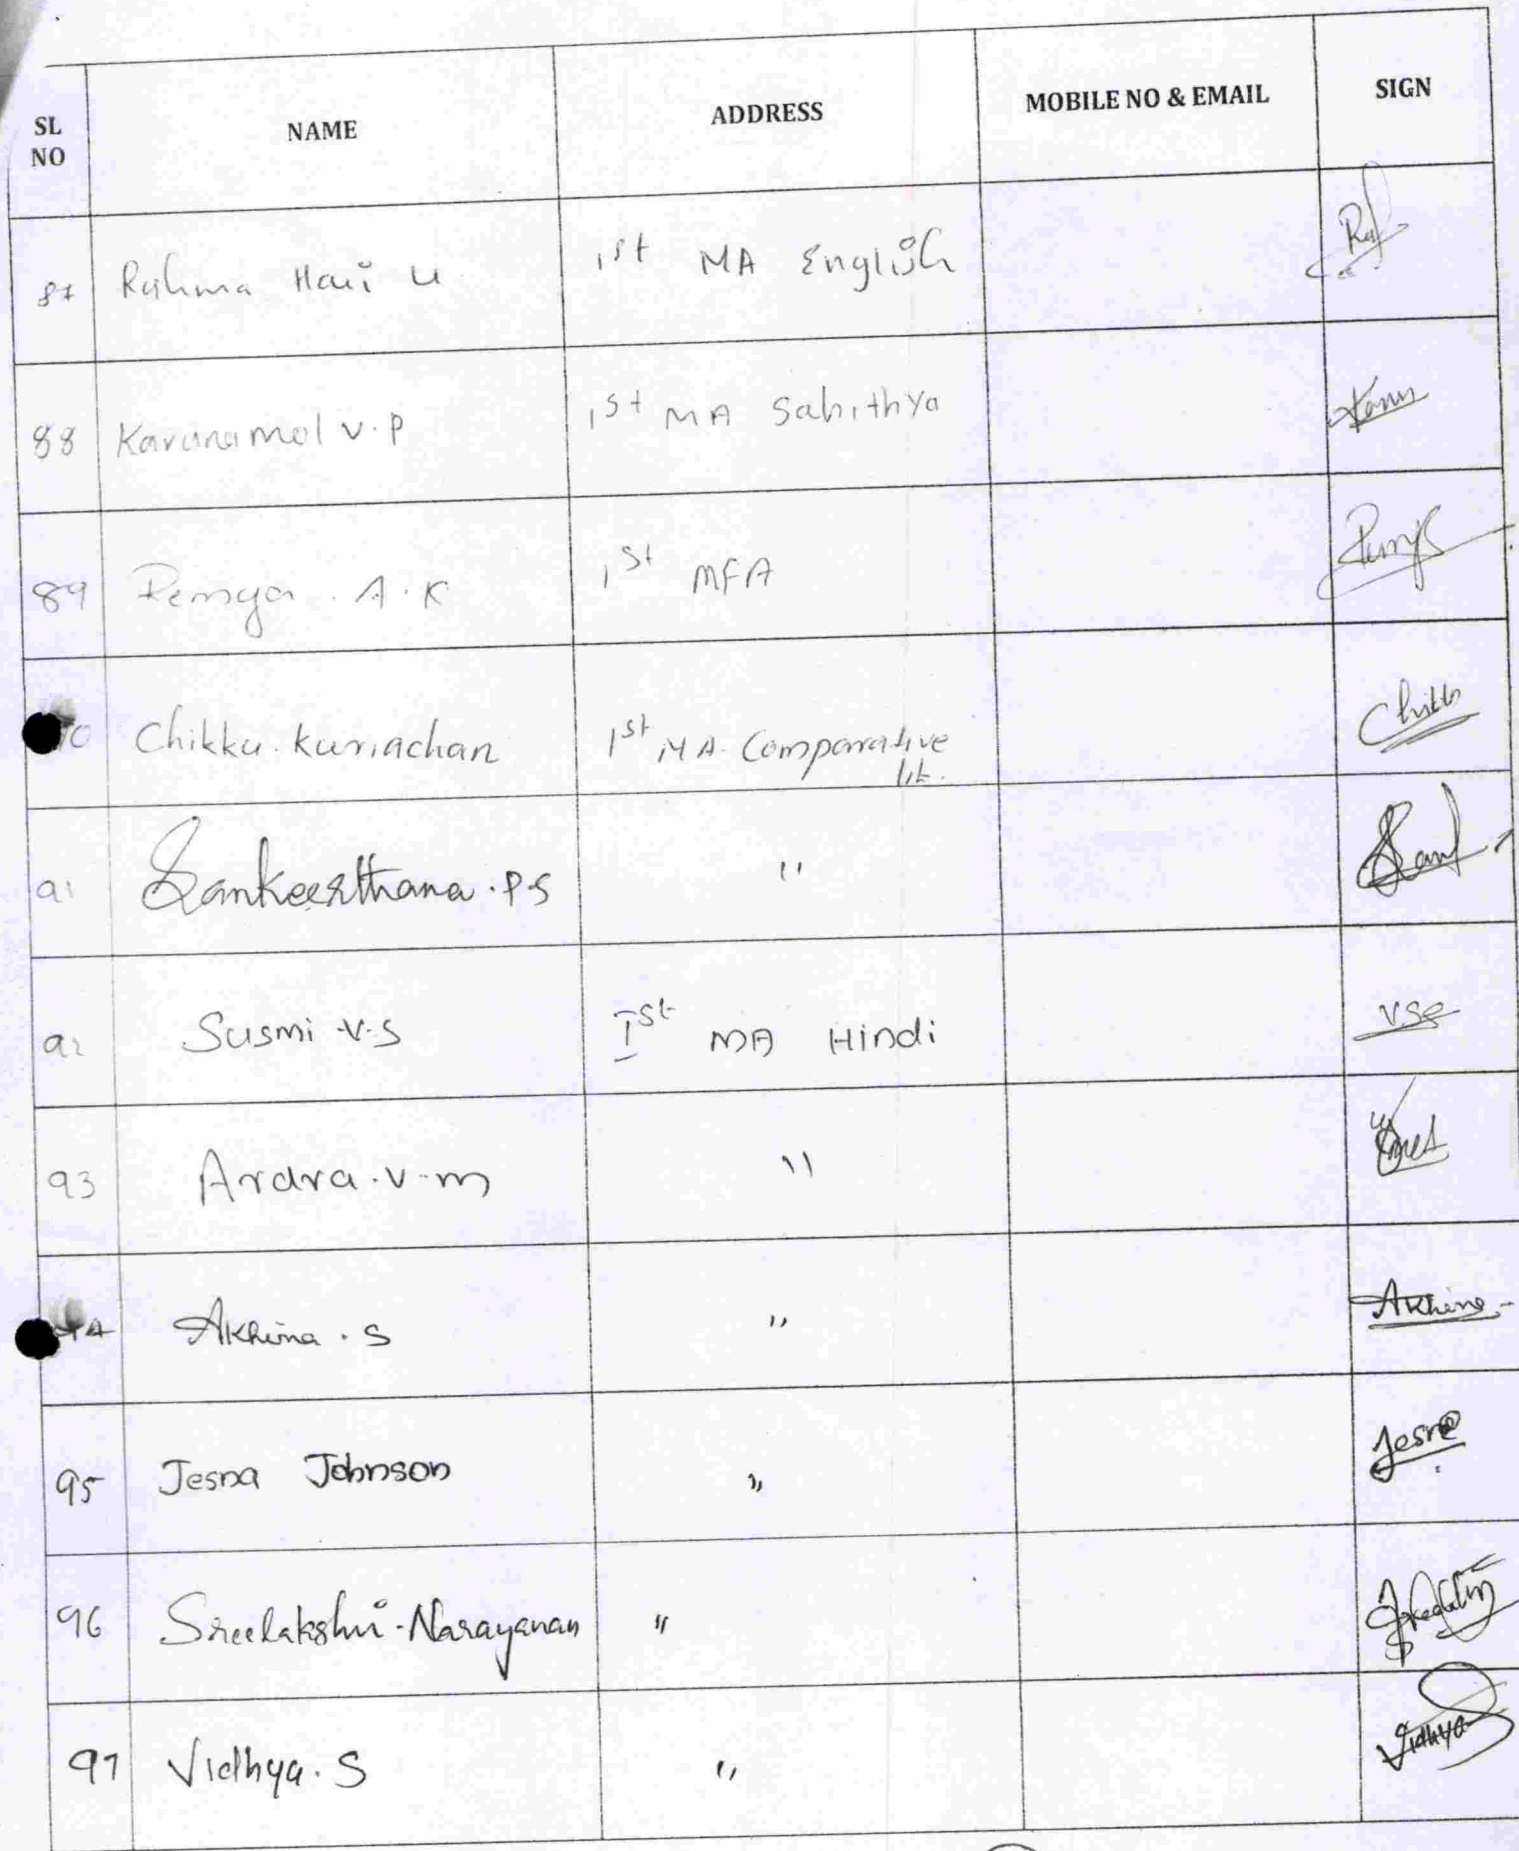 SL NO NAME ADDRESS MOBILE NO & EMAIL SIGN
87 Hari U 1st MA English
88 Karunamol V.P 1st MA Sahithya
89 Remya . A . K 1st MFA
Chikku . Kuriachan 1st MA . Comparative lit.
91 Sankeerthana . P S "
92 Susmi . V . S Ist MA Hindi VSS
93 Ardra . V . m "
Akhina . S " Akhina
95 Jesna Johnson " Jesna
96 Sreelakshmi . Narayanan "
97 Vidhya . S " Vidhya